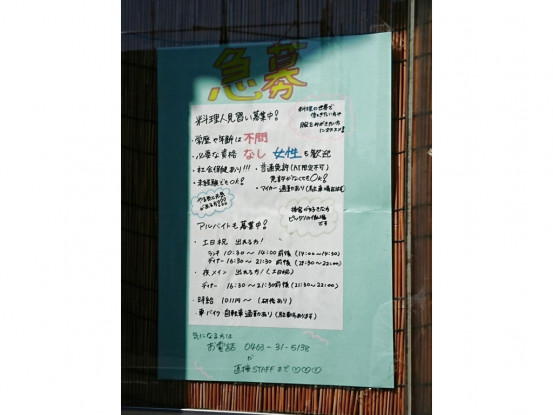 急募
料理人見習い募集中!
料理の世界で
働きたい方や
・学歴や年齢は 不問
・必要な資格 なし 女性も歓迎
・社会保険あり!!!
・普通免許(AT限定不可)
・未経験でもOK!
免許がなくてもOK!
・マイカー通勤あり(駐車場
やる気と元気
がある方!!!
接客が好きな方
ピッタリの職場
です
アルバイトも募集中!
・土日祝 出れる方!
ランチ 10:30 ~ 14:00前後 (14:00~14:30)
ディナー 16:30 ~ 21:30 前後 (21:30~22:00)
・夜メイン 出れる方!(土日祝)
ディナー 16:30 ~ 21:30前後 (21:30~22:00)
・時給 1011円~ (研修あり)
・車 バイク 自転車 通勤あり (駐車場あります)
気になる方は
お電話 0463-31-5138
か
直接STAFFまで♡♡♡